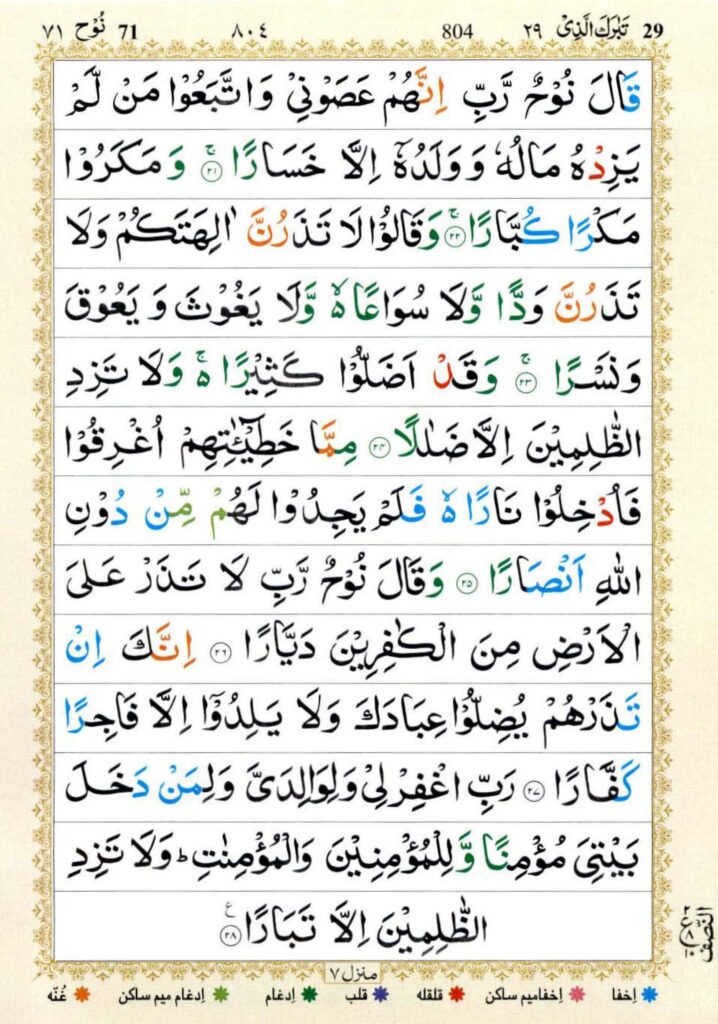 29 تَبٰرَكَ الَّذِیْ ٢٩ 804 ٨٠٤ 71 نُوْح ٧١
قَالَ نُوْحٌ رَّبِّ اِنَّهُمْ عَصَوْنِيْ وَاتَّبَعُوْا مَنْ لَّمْ
يَزِدْهُ مَالُهٗ وَوَلَدُهٗۤ اِلَّا خَسَارًا ۚ‏﴿۲۱﴾ وَمَكَرُوْا
مَكْرًا كُبَّارًا ۚ‏﴿۲۲﴾ وَقَالُوْا لَا تَذَرُنَّ اٰلِهَتَكُمْ وَلَا
تَذَرُنَّ وَدًّا وَّلَا سُوَاعًا ۙ۬ وَّلَا يَغُوْثَ وَيَعُوْقَ
وَنَسْرًا ۚ‏﴿۲۳﴾ وَقَدْ اَضَلُّوْا كَثِيْرًا ۬ ۚ وَلَا تَزِدِ
الظّٰلِمِيْنَ اِلَّا ضَلٰلًا ﴿۲۴﴾ مِمَّا خَطِيْٓـٰٔتِهِمْ اُغْرِقُوْا
فَاُدْخِلُوْا نَارًا ۬ ۙ فَلَمْ يَجِدُوْا لَهُمْ مِّنْ دُوْنِ
اللّٰهِ اَنْصَارًا ﴿۲۵﴾ وَقَالَ نُوْحٌ رَّبِّ لَا تَذَرْ عَلَى
الْاَرْضِ مِنَ الْكٰفِرِيْنَ دَيَّارًا ﴿۲۶﴾ اِنَّكَ اِنْ
تَذَرْهُمْ يُضِلُّوْا عِبَادَكَ وَلَا يَلِدُوْۤا اِلَّا فَاجِرًا
كَفَّارًا ﴿۲۷﴾ رَبِّ اغْفِرْ لِيْ وَلِوَالِدَيَّ وَلِمَنْ دَخَلَ
بَيْتِيَ مُؤْمِنًا وَّلِلْمُؤْمِنِيْنَ وَالْمُؤْمِنٰتِ ؕ وَلَا تَزِدِ
الظّٰلِمِيْنَ اِلَّا تَبَارًا ﴿۲۸﴾ ع
٢ ع ٨ النّصف
منزل ٧
اِخفا اِخفامیم ساکن قلقله قلب اِدغام اِدغام میم ساکن غُنّه